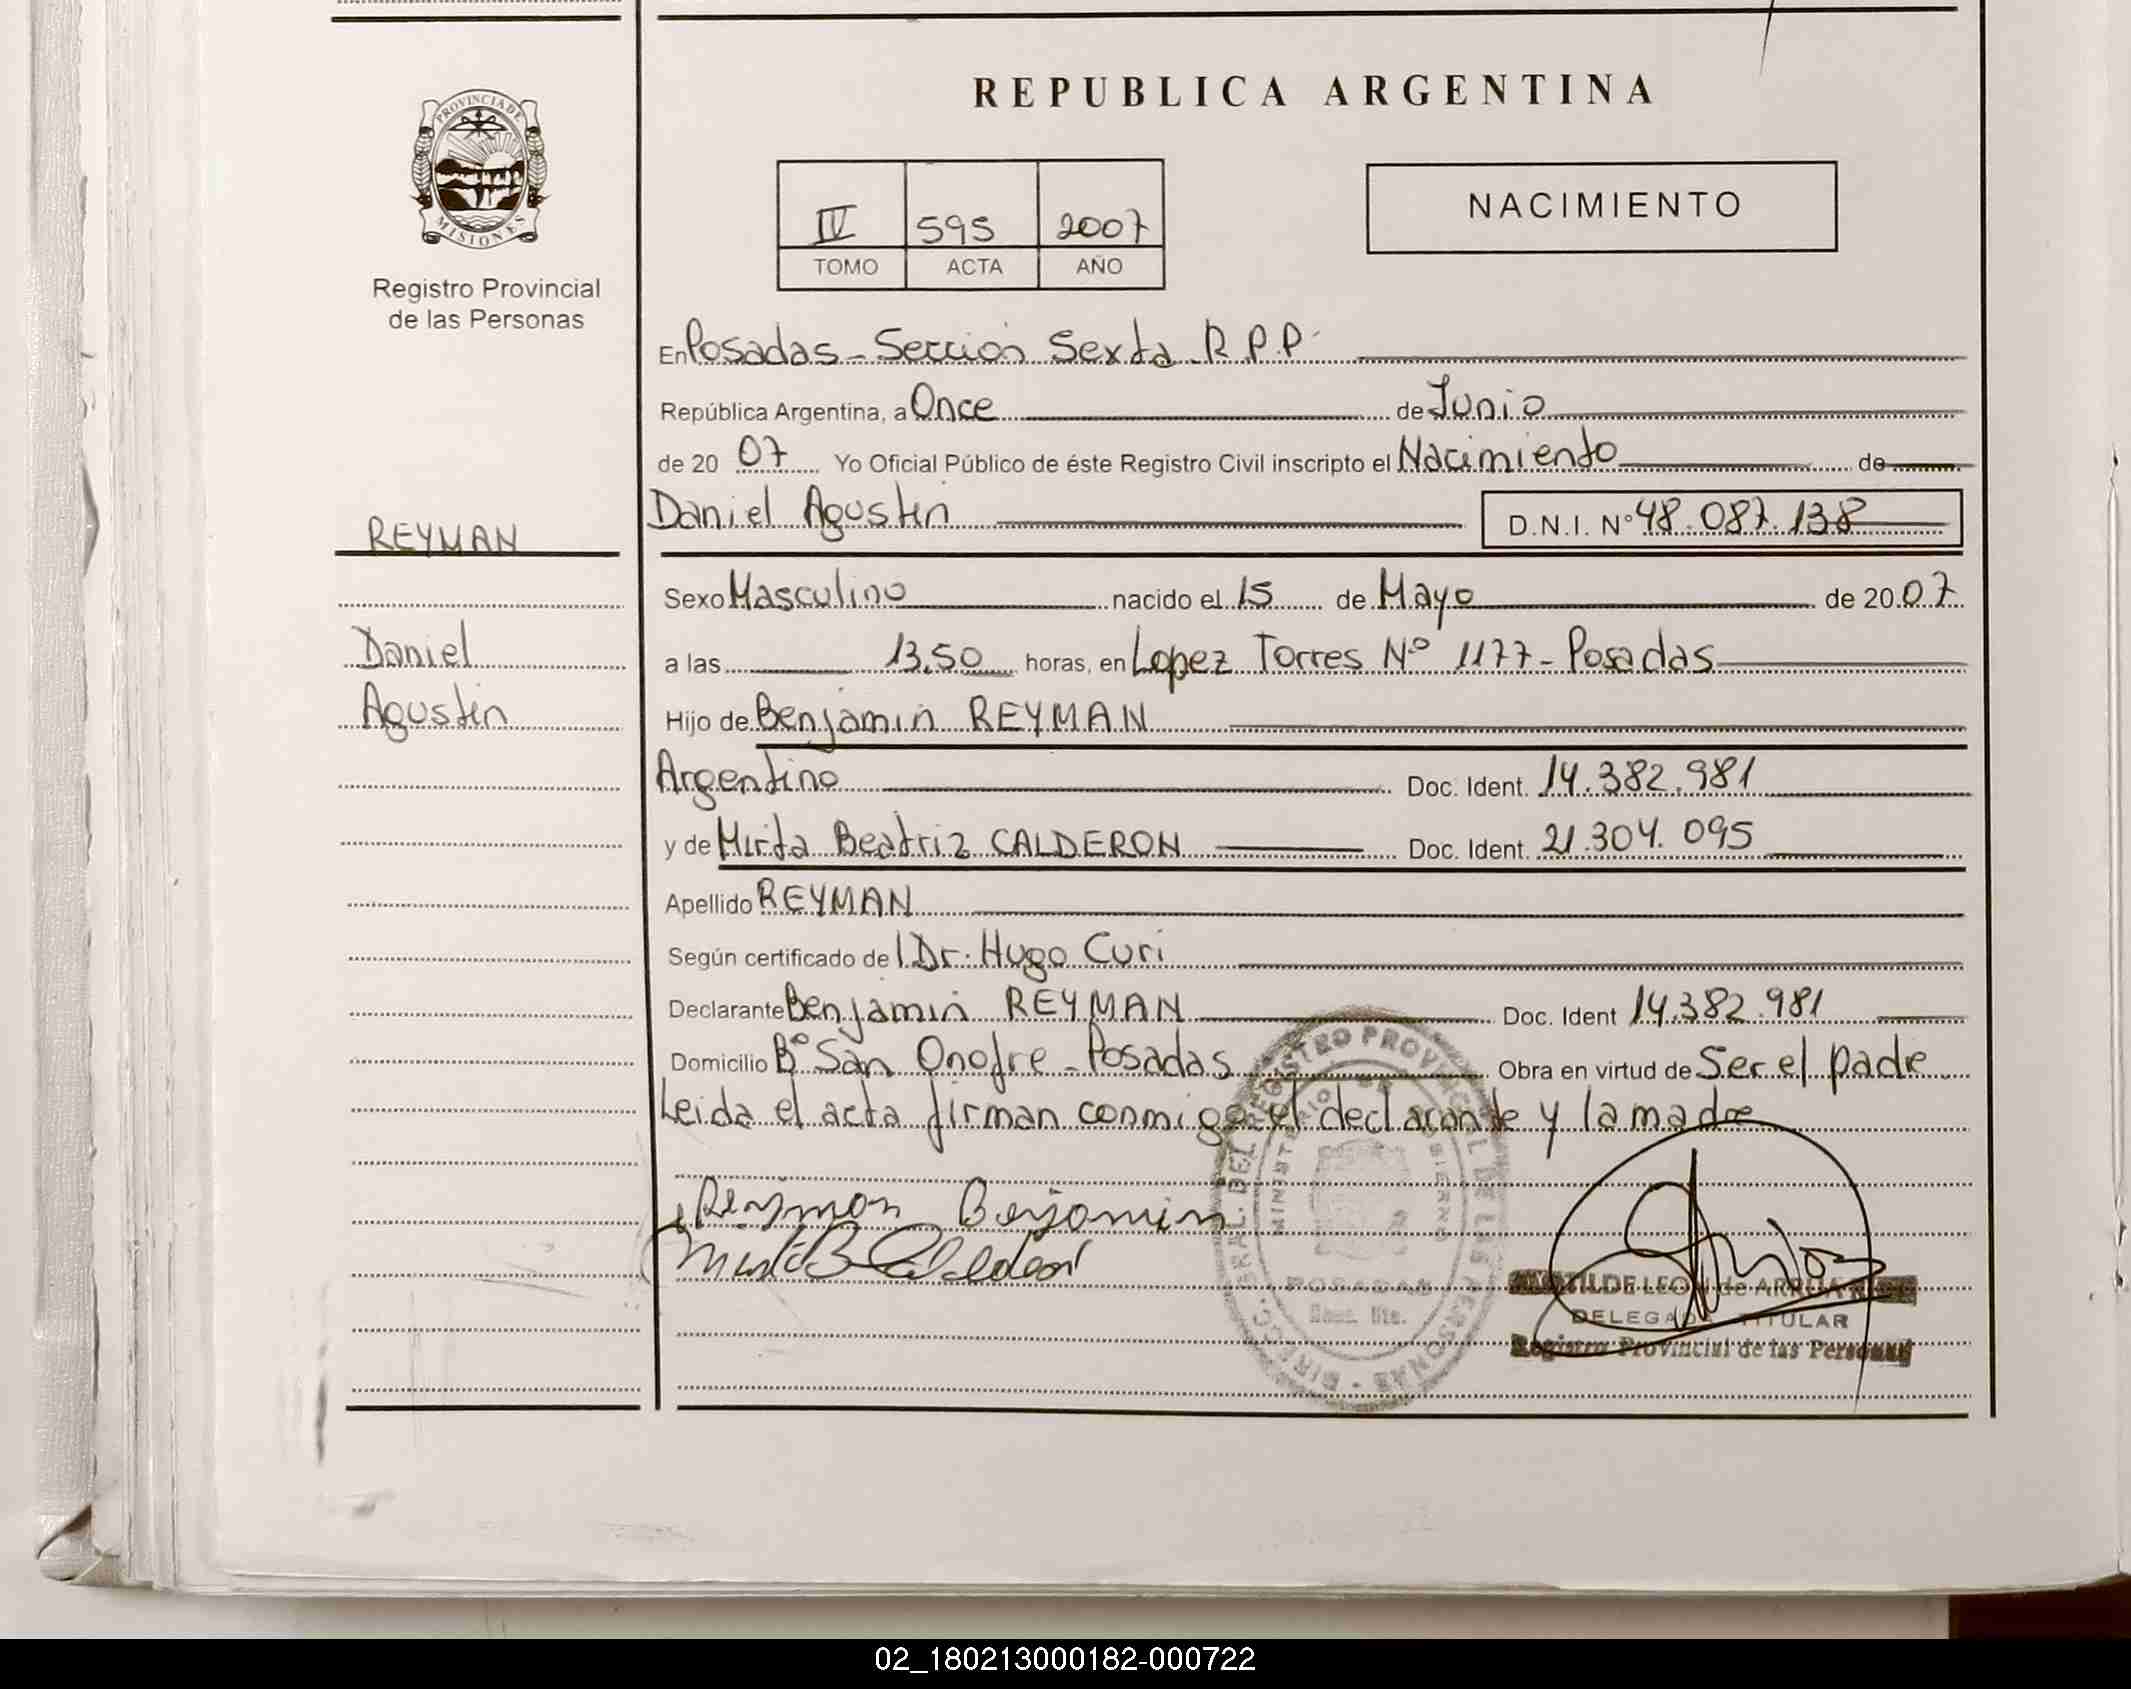 REPUBLICA ARGENTINA
PROVINCIA DE
MISIONES
Registro Provincial
de las Personas
IV 595 2007
TOMO ACTA AÑO
NACIMIENTO
En Posadas - Sección Sexta R.P.P.
República Argentina, a Once de Junio
de 20 07 Yo Oficial Público de éste Registro Civil inscripto el Nacimiento de
Daniel Agustin D.N.I. Nº 48.087.138
REYMAN
Sexo Masculino nacido el 15 de Mayo de 20 07
Daniel
a las 13,50 horas, en Lopez Torres Nº 1177 - Posadas
Agustin
Hijo de Benjamin REYMAN
Argentino Doc. Ident. 14.382.981
y de Mirta Beatriz CALDERON Doc. Ident. 21.304.095
Apellido REYMAN
Según certificado de l Dr. Hugo Curi
Declarante Benjamin REYMAN Doc. Ident 14.382.981
Domicilio Bº San Onofre - Posadas Obra en virtud de Ser el padre
Leida el acta firman conmigo el declarante y la madre
Reyman Benjamin
DIRECC. GRAL. DEL REGISTRO PROVINCIAL DE LAS PERSONAS
MINISTERIO DE GOBIERNO
POSADAS
DE LEON de
DELEGADA TITULAR
Registro Provincial de las Personas
02_180213000182-000722